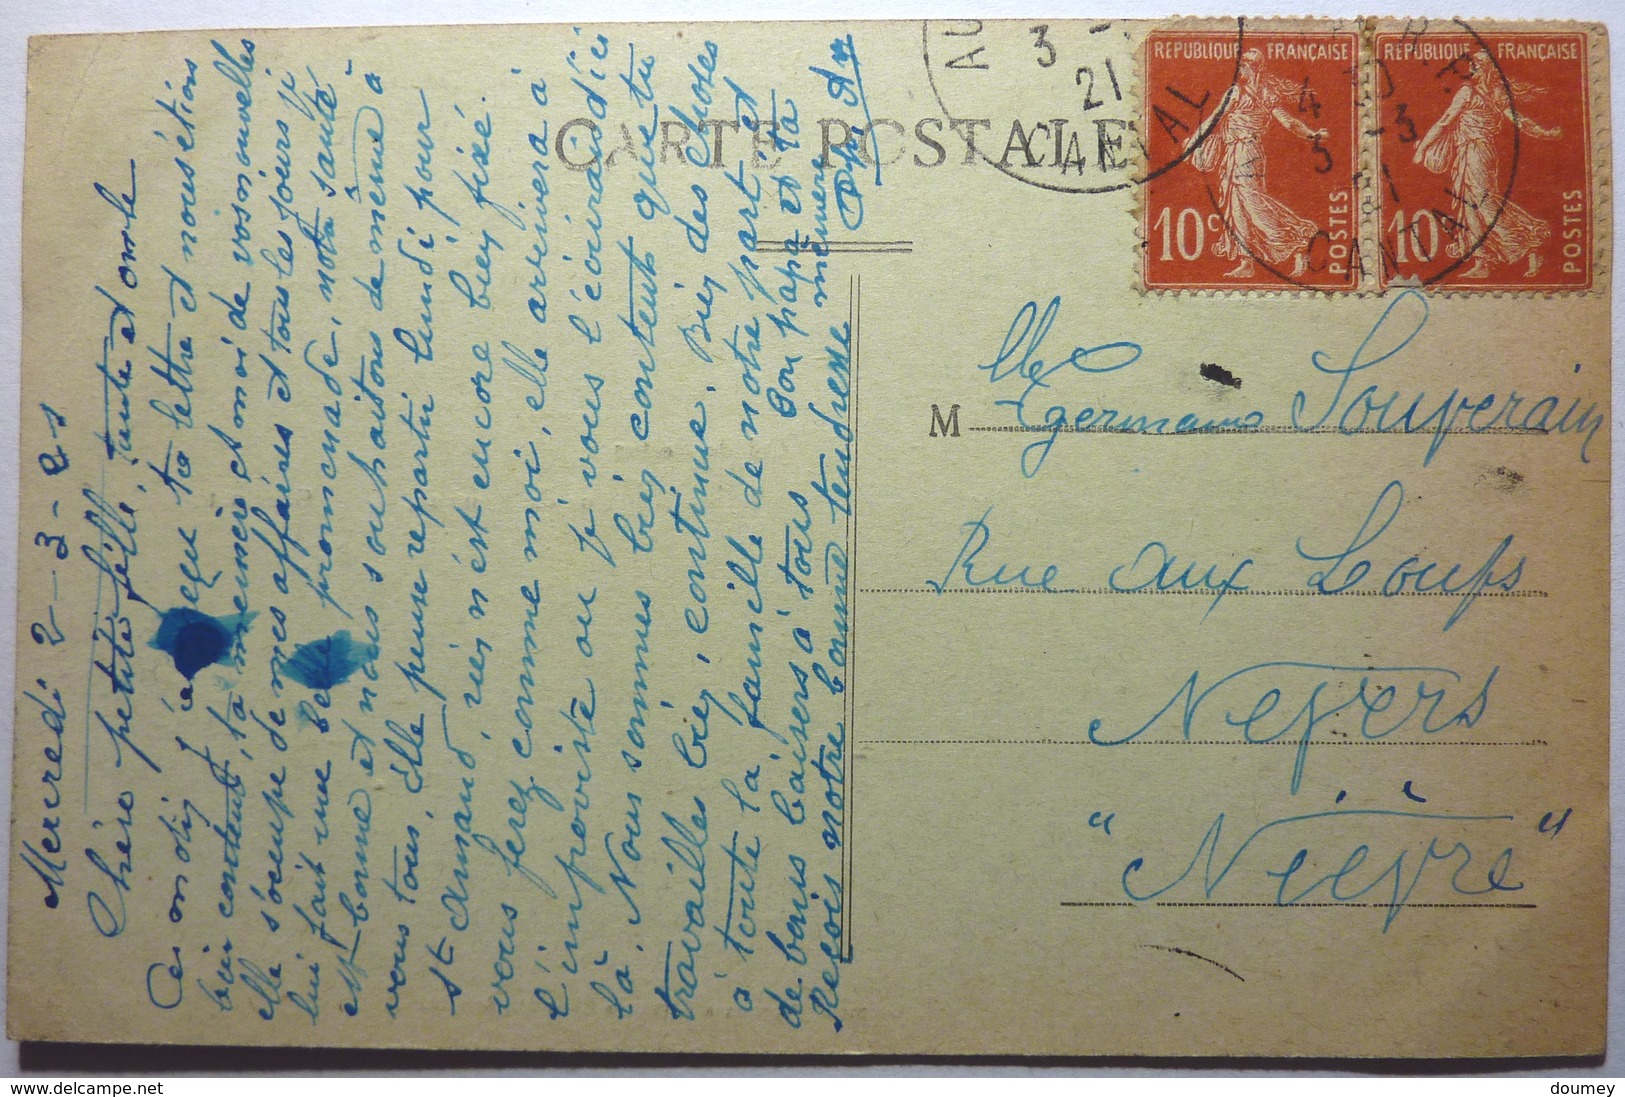 Mercredi 2-3-21
Chère petite fille, tante et oncle
Ce matin j'ai reçu ta lettre et nous étions
bien contents, ta mémère et moi de vos nouvelles
elle s'occupe de mes affaires et tous les jours je
lui fait une belle promenade, notre santé
est bonne et nous souhaitons de même à
vous tous. Elle pense repartir lundi pour
St Amand, rien n'est encore bien fixé.
vous ferez comme moi, elle arrivera à
l'improviste ou je vous l'écrirai d'ici
là. Nous sommes bien contents que tu
travailles bien, continue. Bien des choses
à toute la famille de notre part et
de bons baisers à tous Ton papa et ta
Reçois notre bonne tendresse mémère
CARTE POSTALE
AU
3
21
CANTAL
RÉPUBLIQUE FRANÇAISE
10c
POSTES
RÉPUBLIQUE FRANÇAISE
10c
POSTES
4 30
3 -3
21
CANTAL
M
Mlle
Germaine Souverain
Rue aux Loups
Nevers
"Nièvre"
delcampe.net
doumey